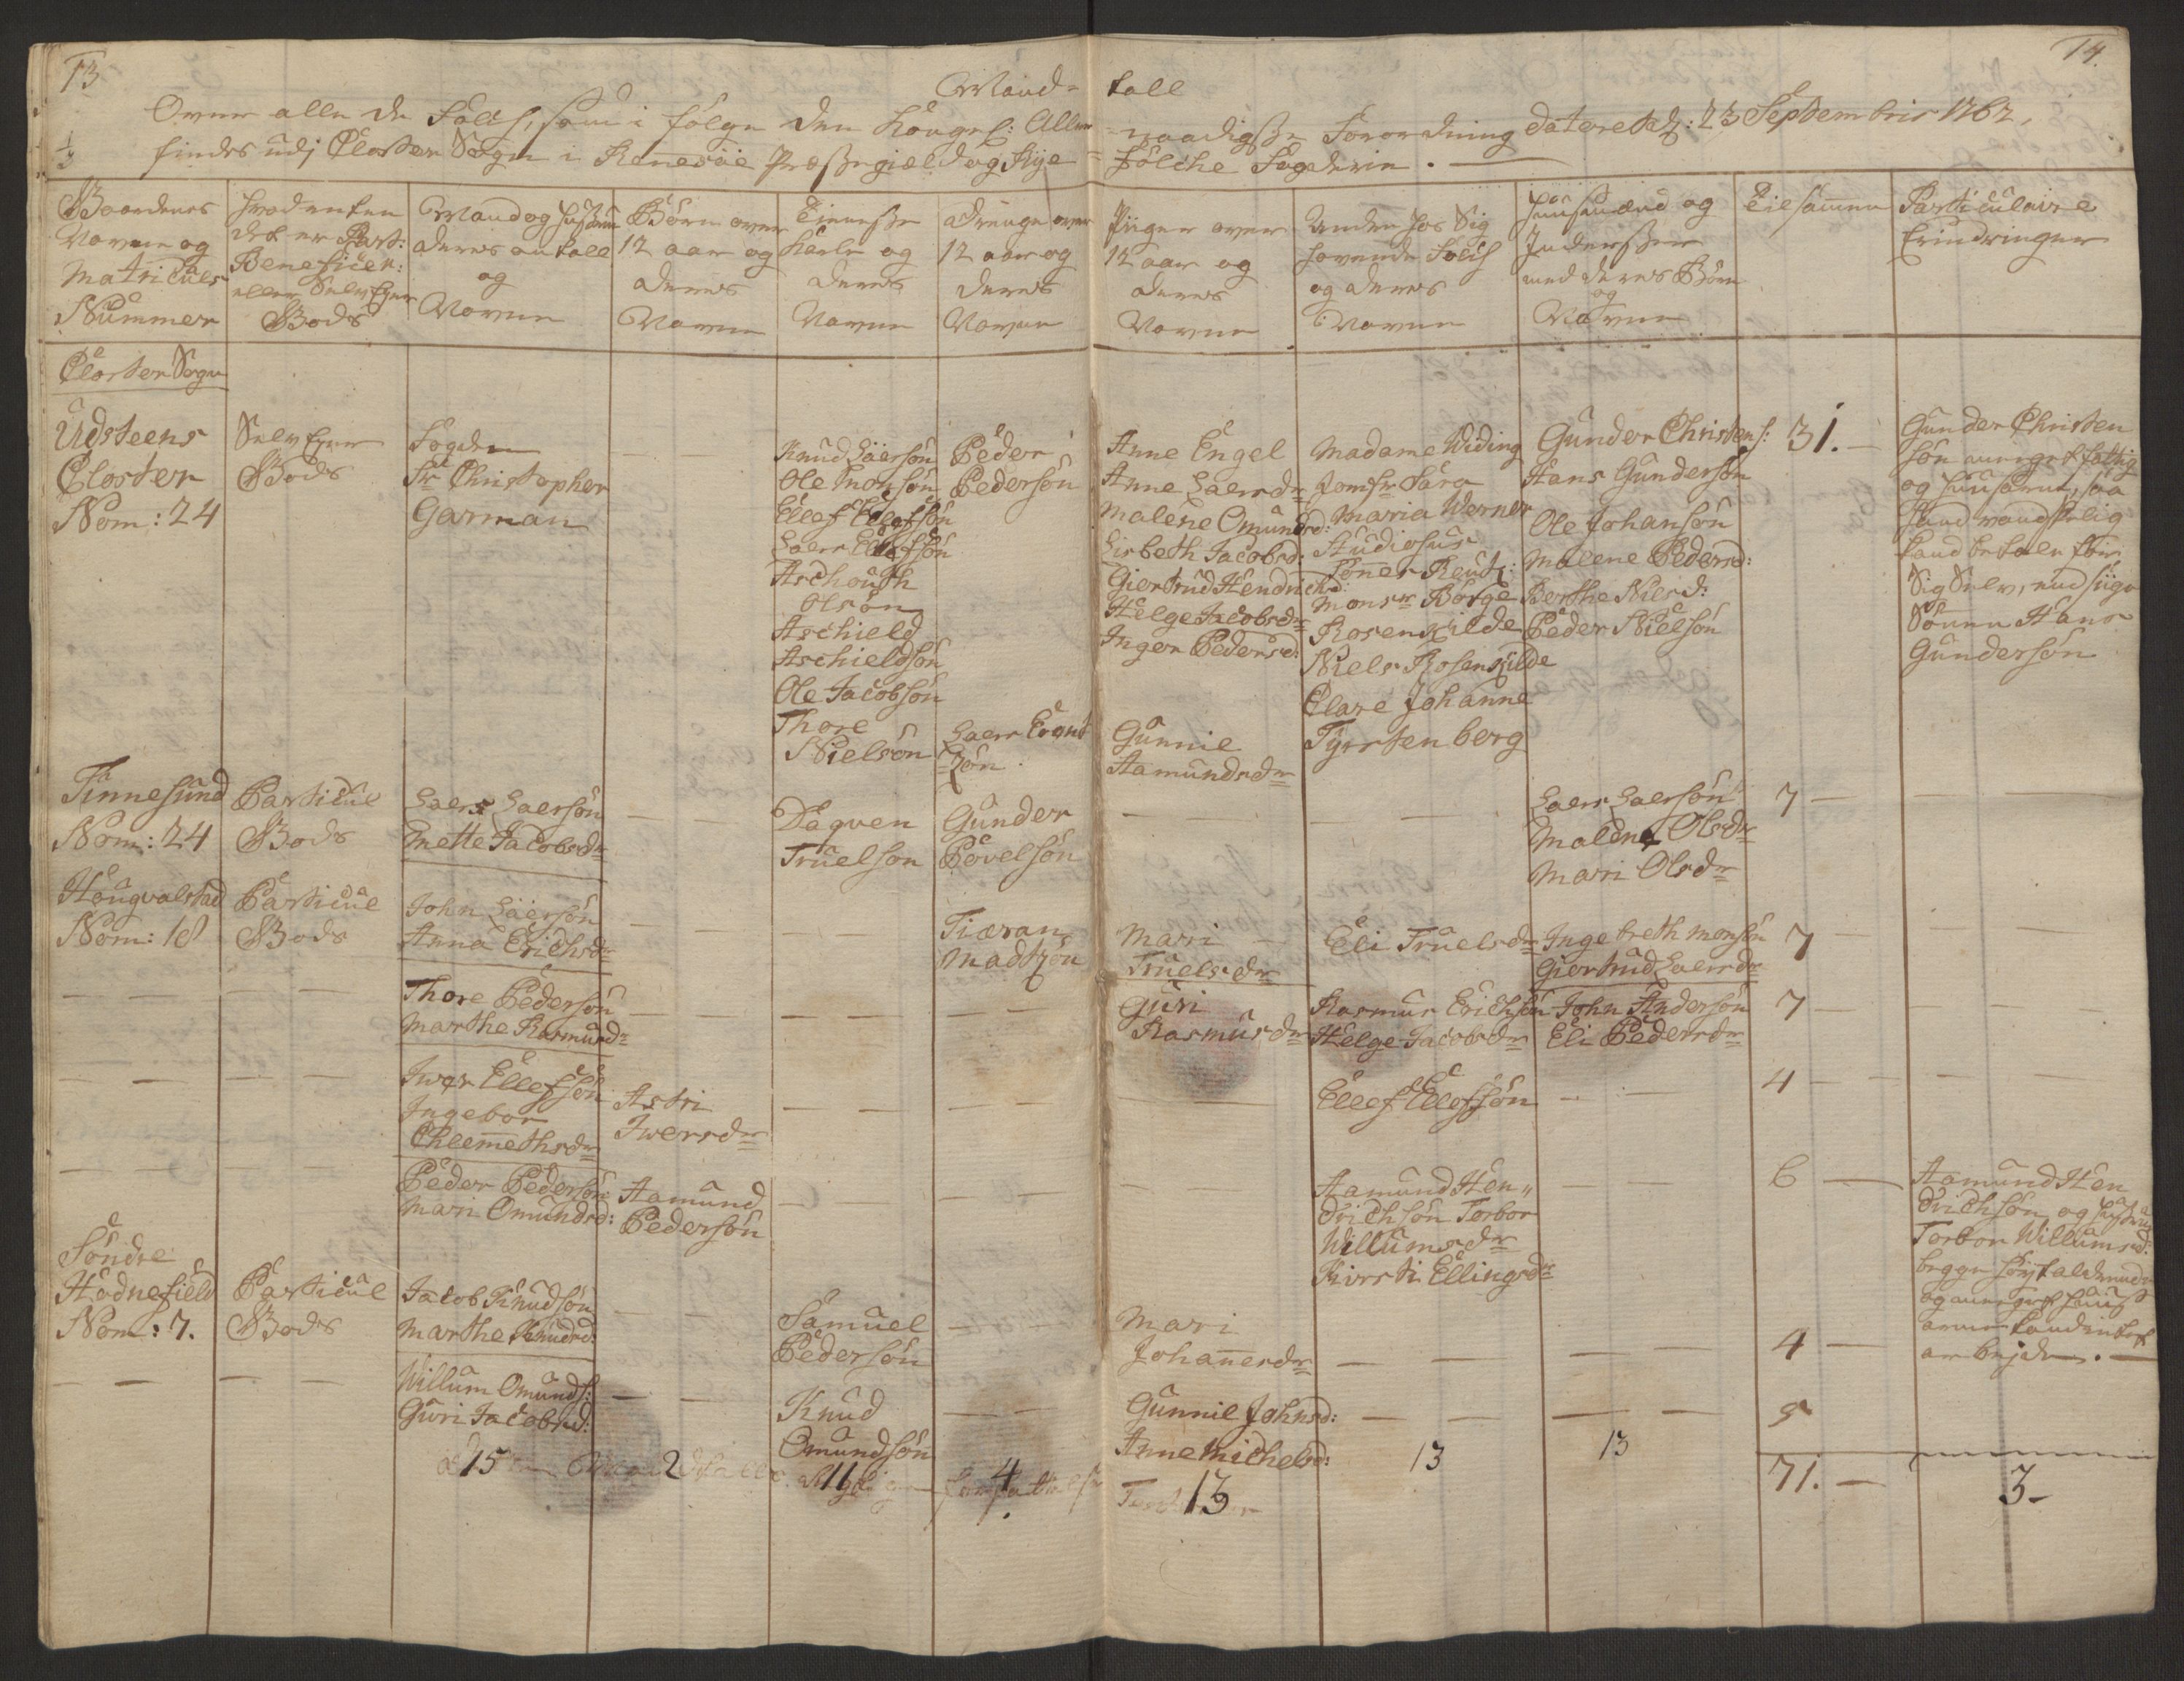 13
14.
Mand- tall
Over alle de Folch, som i følge den Kongel: Aller- naadigste Forordning dateret d: 23 Septembris 1762,
findes udj Closter Sogn i Rennesöe Præstegield og Rye- fölche Fogderie.
Gaardenes
Navne og
Matriculs
Nummer
hvad enten
det er Part:
Beneficer:
eller Selv Eyer
Gods
Mand og Hustrue
deres antall
og
Navne
Börn over
12 aar og
deres
Navne
Tieneste
Karle og
deres
Navne
Drenge over
12 aar og
deres
Navne
Piiger over
12 aar og
deres
Navne
Anden hos Sig
havende Folch
og deres
Navne
Huusmænd og
Inderster
med deres Börn
og
Navne
Tilsammen
Particulaire
Erindringer
Closter Sogn
Udsteens
Closter
Nom: 24
Selv Eyer
Gods
Fogden
Sr Christopher
Garman
Knud Säersön
Ole Monsön
Ellef Ellefsön
Saer Ellefsön
Aschouth
Olsön
Aschield
Aschieldsön
Ole Jacobsön
Thore
Nielsön
Peder
Pedersön
Saer Evant
Zön
Anne Engel
Anne Saersdr
Malene Omundsd:
Lisbeth Jacobsd:
Giertrud Hendrichd:
Helge Jacobsdr
Inger Pedersd:
Gunnil
Aamundsdr
Madame Widing
Jomfr Sara
Maria Werner
Studiosus
Söner Reutz:
Monsr Börge
Rosenkilde
Niels Rosenkilde
Clare Johanne
Tyrstenberg
Gunder Christens:
Hans Gundersön
Ole Johansön
Malene Pedersd:
Berthe Nilsd:
Peder Nielsön
31.
Gunder Christen
sön meget fattig
og huusarm, saa
hand vandskelig
kand betale for
Sig Selv, end siige
Sönnen Hans
Gundersön
Finnesund
Nom: 24
Particul
Gods
Saer Saersön
Mette Jacobsdr
Dagven
Truelson
Gunder
Povelsön
Saer Saersön
Malene Olsdr
Mari Olsdr
7
Hougvalstad
Nom: 18
Particul
Gods
John Säersön
Anna Erichsdr
Tiæran
Madtzön
Mari
Truelsdr
Eli Truelsdr
Ingebreth Monsön
Giertrud Saersdr
7
Thore Pedersön
Marthe Rasmusdr
Guri
Rasmusdr
Rasmus Erichsön
Helge Jacobsdr
John Andersön
Eli Pedersdr
7
Iver Ellefsön
Ingebor
Chlemethsdr
Astri
Iversdr
Ellef Ellefsön
4
Peder Pedersön
Mari Omundsd:
Aamund
Pedersön
Aamund Hen„
drichsön Torbor
Willumsdr
Kirsti Ellingsdr
6
Aamund Hen
drichsön og Hustrue
Torbor Willumsd:
begge höyt aldrende
og meget huus
arme kand intet
arbejde.
Söndre
Hodnefield
Nom: 7.
Particul
Gods
Jacob Knudsön
Marthe Knudsd:
Samuel
Pedersön
Mari
Johannesdr
4
Willum Omunds:
Guri Jacobsd:
Knud
Omundsön
Gunnil Johnsd:
Anne Michelsd:
5
15
2
11
4
13
13
13
71.
3